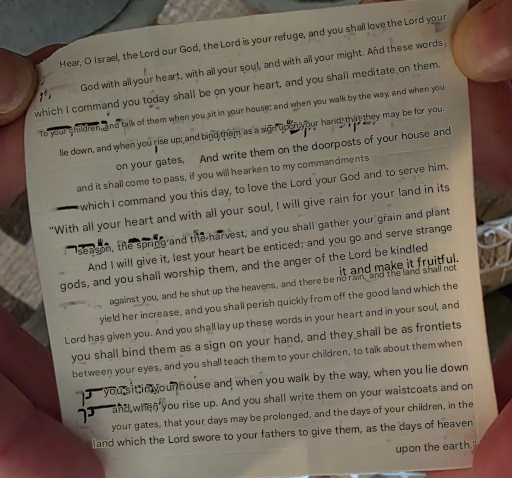 Hear, O Israel, the Lord our God, the Lord is your refuge, and you shall love the Lord your
God with all your heart, with all your soul, and with all your might. And these words
which I command you today shall be on your heart, and you shall meditate on them.
To your children, and talk of them when you sit in your house; and when you walk by the way, and when you
lie down, and when you rise up; and bind them as a sign upon your hand; that they may be for you.
on your gates, And write them on the doorposts of your house and
and it shall come to pass, if you will hearken to my commandments
which I command you this day, to love the Lord your God and to serve him.
"With all your heart and with all your soul, I will give rain for your land in its
season, the spring and the harvest, and you shall gather your grain and plant
And I will give it, lest your heart be enticed; and you go and serve strange
gods, and you shall worship them, and the anger of the Lord be kindled
it and make it fruitful.
against you, and he shut up the heavens, and there be no rain, and the land shall not
yield her increase, and you shall perish quickly from off the good land which the
Lord has given you. And you shall lay up these words in your heart and in your soul, and
you shall bind them as a sign on your hand, and they shall be as frontlets
between your eyes, and you shall teach them to your children, to talk about them when
you sit in your house and when you walk by the way, when you lie down
and, when you rise up. And you shall write them on your waistcoats and on
your gates, that your days may be prolonged, and the days of your children, in the
land which the Lord swore to your fathers to give them, as the days of heaven
upon the earth."